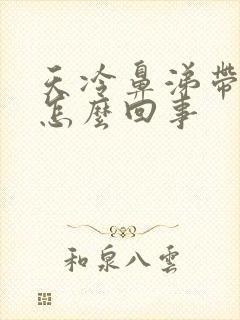 天冷鼻涕帶
怎麼回事
和泉八雲